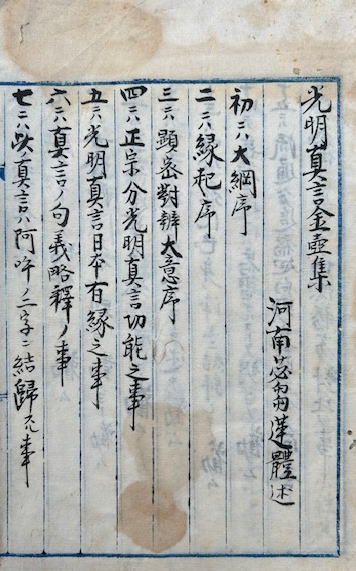 光明真言金壺集
河南苾蒭蓮體述
初ニハ大綱序
二ニハ縁起序
三ニハ顕密對辨大意序
四ニハ正宗分光明真言功能之事
五ニハ光明真言日本有縁之事
六ニハ真言ノ句義略釋ノ事
七ニハ此ノ真言ハ阿吽ノ二字ニ結歸スル事